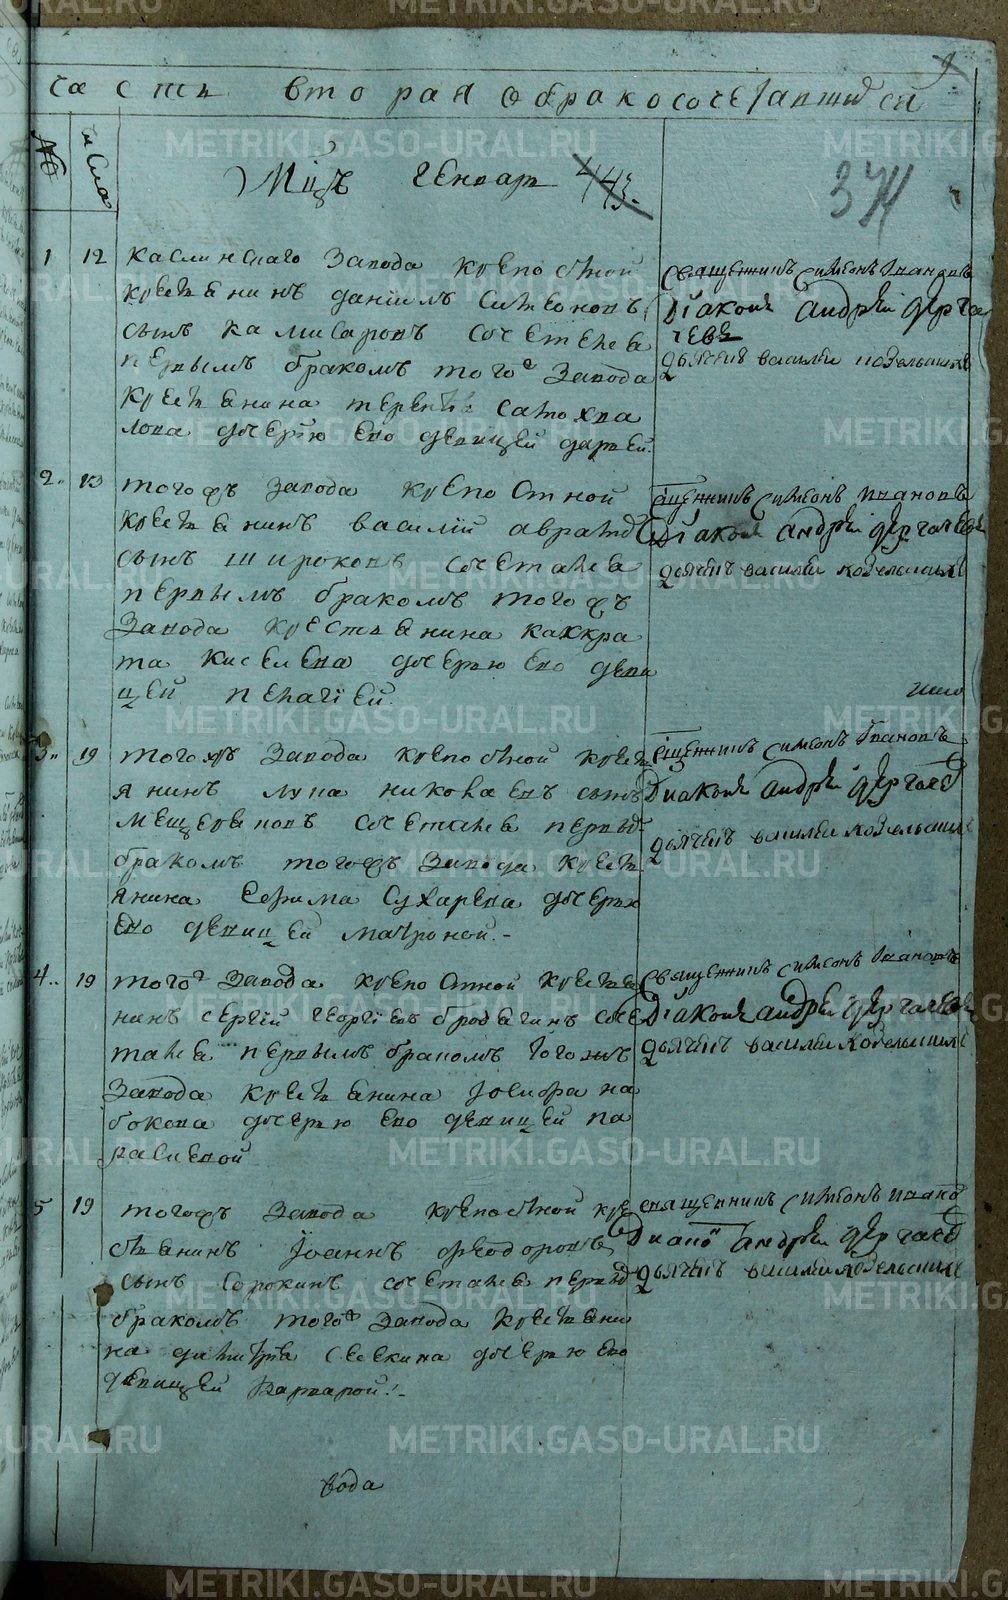 METRIKI.GASO-URAL.RU
часть вторая о бракосочетавшихся
№ числа
Мцъ генварь
374
1 12 каслинскаго завода крепостной
крестьянинъ данiилъ симеоновъ
сынъ камисаровъ сочетанъ
первымъ бракомъ того завода
крестьянина терентiя самохва
лова дочерью ево девицей дарьей.
священникъ симеонъ ивановъ
Дiаконъ андрей дерга
чевъ
дьячекъ василей
2 13 тогожъ завода крепостной
крестьянинъ василiй
сынъ широковъ сочетанъ
первымъ бракомъ тогожъ
завода крестьянина
киселева дочерью ево деви
цей пелагiей.
священникъ симеонъ ивановъ
Дiаконъ андрей дергачевъ
дьячекъ василей
3 19 тогожъ завода крепостной крест
янинъ лупа николаевъ сынъ
мещеряковъ сочетанъ первы
бракомъ тогожъ завода крест
янина ефима сухарева дочерью
ево девицей матроной.-
священникъ симеонъ ивановъ
Дiаконъ андрей дергачев
дьячекъ василей
4 19 того завода крепостной крестья
нинъ сергiй георгiевъ бродягинъ соче
танъ первымъ бракомъ тогожъ
завода крестьянина iосифа на
бокова дочерью ево девицей па
расковой
священникъ симеонъ ивановъ
Дiаконъ андрей дергачевъ
дьячекъ василей
5 19 тогожъ завода крепостной кре
стьянинъ iоаннъ феодоровъ
сынъ сорокинъ сочетанъ первы
бракомъ того завода крестьяни
на димитрiя дочерью ево
девицей варварой.-
священникъ симеонъ ивано
Дiако андрей дергачев
дьячекъ василей
вода